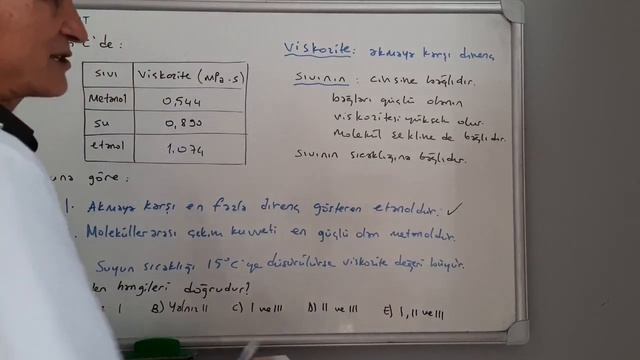 T
°C'de:
sıvı Viskozite (mPa.s)
Metanol 0,544
su 0,890
etanol 1,074
Viskozite: akmaya karşı direnç
sıvının: cinsine bağlıdır.
bağları güçlü olanın
viskozitesi yüksek olur.
molekül şekline de bağlıdır.
sıvının sıcaklığına bağlıdır.
una göre:
I. Akmaya karşı en fazla direnç gösteren etanoldür. ✓
Moleküllerarası çekim kuvveti en güçlü olan metanoldür.
Suyun sıcaklığı 15°C'ye düşürülürse viskozite değeri büyür.
den hangileri doğrudur?
I B) Yalnız II C) I ve III D) II ve III E) I, II ve III